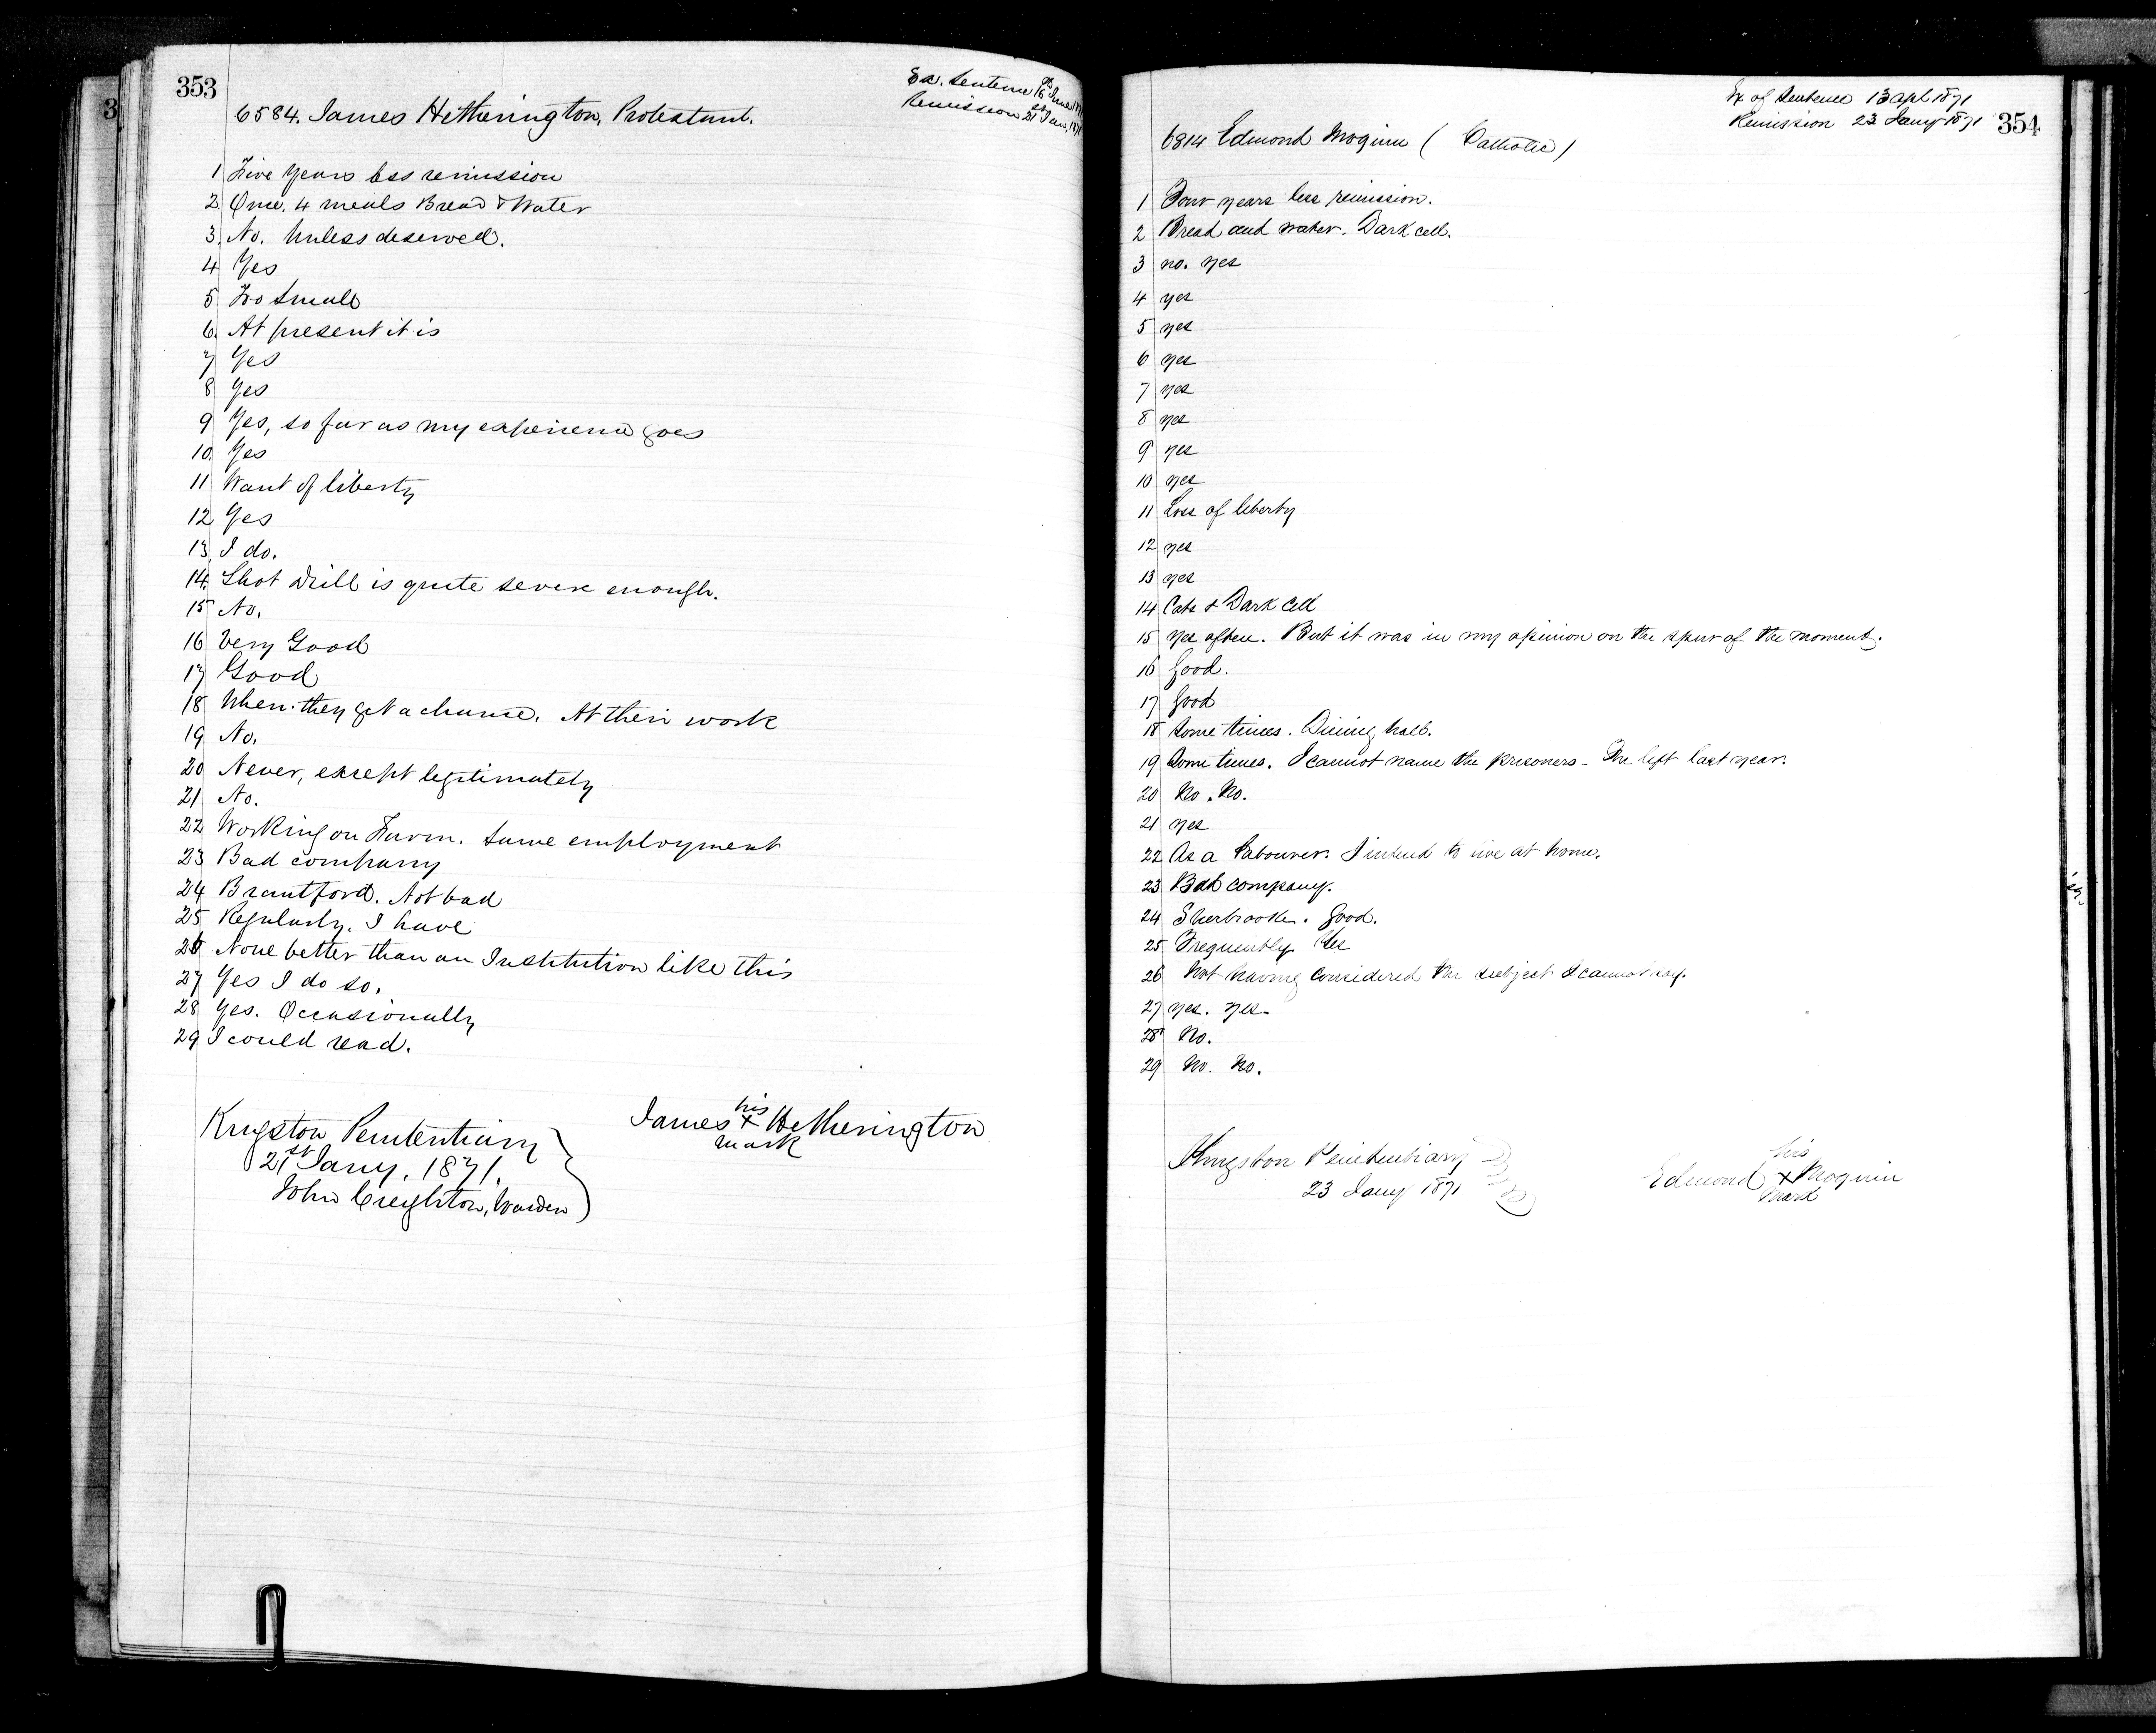 353
Ex. Sentence 16th June 1871
Remission 21st Jan, 1871
6584. James Hetherington, Protestant.
1 Five Years less remission
2 Once. 4 meals Bread & Water
3. No. Unless deserved.
4 Yes
5 Too Small
6. At present it is
7 Yes
8 Yes
9 Yes, so far as my experience goes
10. Yes
11 Want of liberty
12 Yes
13, I do.
14. Shot drill is quite severe enough.
15 No.
16 Very Good
17 Good
18 When they get a chance. At their work
19 No.
20 Never, except legitimately
21 No.
22 Working on Farm. Same employment
23 Bad company
24 Brantford. Not bad
25 Regularly. I have
26 None better than an Institution like this
27 Yes I do so.
28 Yes. Occasionally
29 I could read.
James his x mark Hetherington
Kingston Penitentiary
21st Jany. 1871.
John Creighton, Warden
354
Ex of Sentence 13 Apl 1871
Remission 23 Jany 1871
6814 Edmond Moquin (Catholic)
1 Four years less remission.
2 Bread and water. Dark cell.
3 no. yes
4 yes
5 yes
6 yes
7 yes
8 yes
9 yes
10 yes
11 Loss of liberty
12 yes
13 yes
14 Cats & Dark Cell
15 yes often. But it was in my opinion on the spur of the moment.
16 Good.
17 Good
18 Some times. Dining hall.
19 Some times. I cannot name the prisoners - One left last year.
20 No. No.
21 yes
22 As a Labourer. I intend to live at home.
23 Bad company.
24 Sherbrooke. Good.
25 Frequently Yes
26 Not having considered the subject I cannot say.
27 yes. yes.
28 No.
29 No. No.
Kingston Penitentiary
23 Jany 1871
Edmond his x mark Moquin